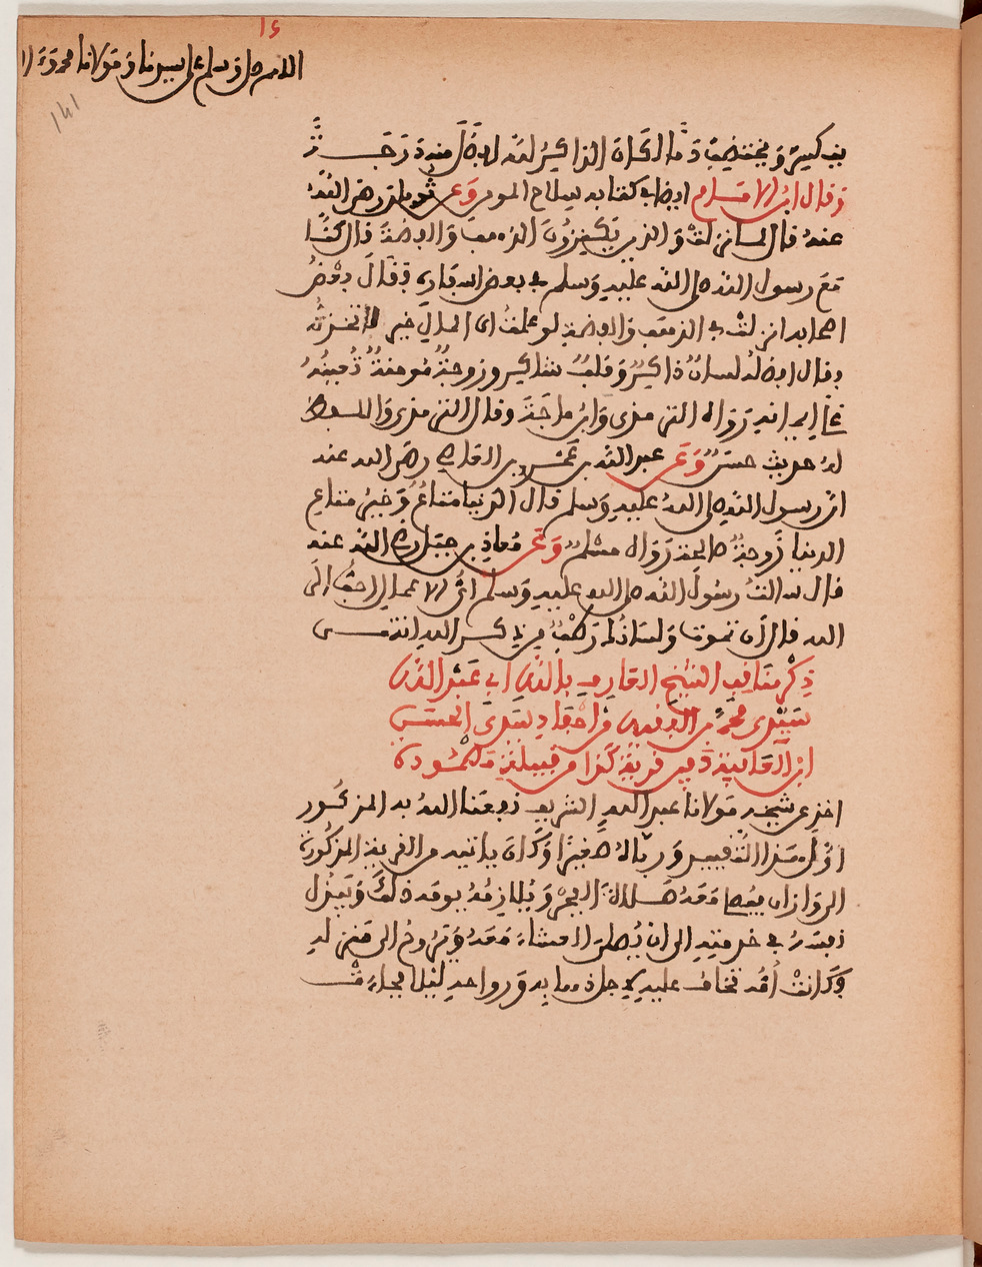 ١٤
اللهم صل وسلم على سيدنا ومولانا محمد وءا
١٤١
بيد كسيرة ومختضب دما لكان الذاكر لله افضل منه درجة
وقال ابن الامام ايضا في كتابه سلاح المومن وعن ثوبان رضي الله
عنه قال لما نزلت والذين يكنزون الذهب والفضة قال كنا
مع رسول الله صلى الله عليه وسلم في بعض اسفاره فقال بعض
اصحابه انزلت في الذهب والفضة لو علمنا اي المال خير اتخذناه
فقال افضله لسان ذاكر وقلب شاكر وزوجة مومنة تعينه
على ايمانه رواه الترمذي وابن ماجة وقال الترمذي واللفظ
له حديث حسن وعن عبد الله بن عمرو بن العاصي رضي الله عنه
ان رسول الله صلى الله عليه وسلم قال الدنيا متاع وخير متاع
الدنيا زوجة صالحة رواه مسلم وعن معاذ بن جبل رضي الله عنه
قال سالت رسول الله صلى الله عليه وسلم اي الاعمال احب الى
الله قال ان تموت ولسانك رطب من ذكر الله انتهى
ذكر مناقب الشيخ العارف بالله ابي عبد الله
سيدي محمد بن الفقيه من احفاد سيدي الحسن
ابن العافية دفين قرية كذا من قبيلة مصمودة
اخذ عن شيخه مولانا عبد الله الشريف نفعنا الله به المذكور
اول هذا التقييد ورباه صغيرا وكان ياتيه من القرية المذكورة
الى وازان يصلي معه صلاة الفجر ويلازمه يومه ذلك وينزل
نفسه في خدمته الى ان يصلي العشاء معه ويروح الى منزله
وكانت امه تخاف عليه لاجل ذهابه وحده ليلا فجاءت